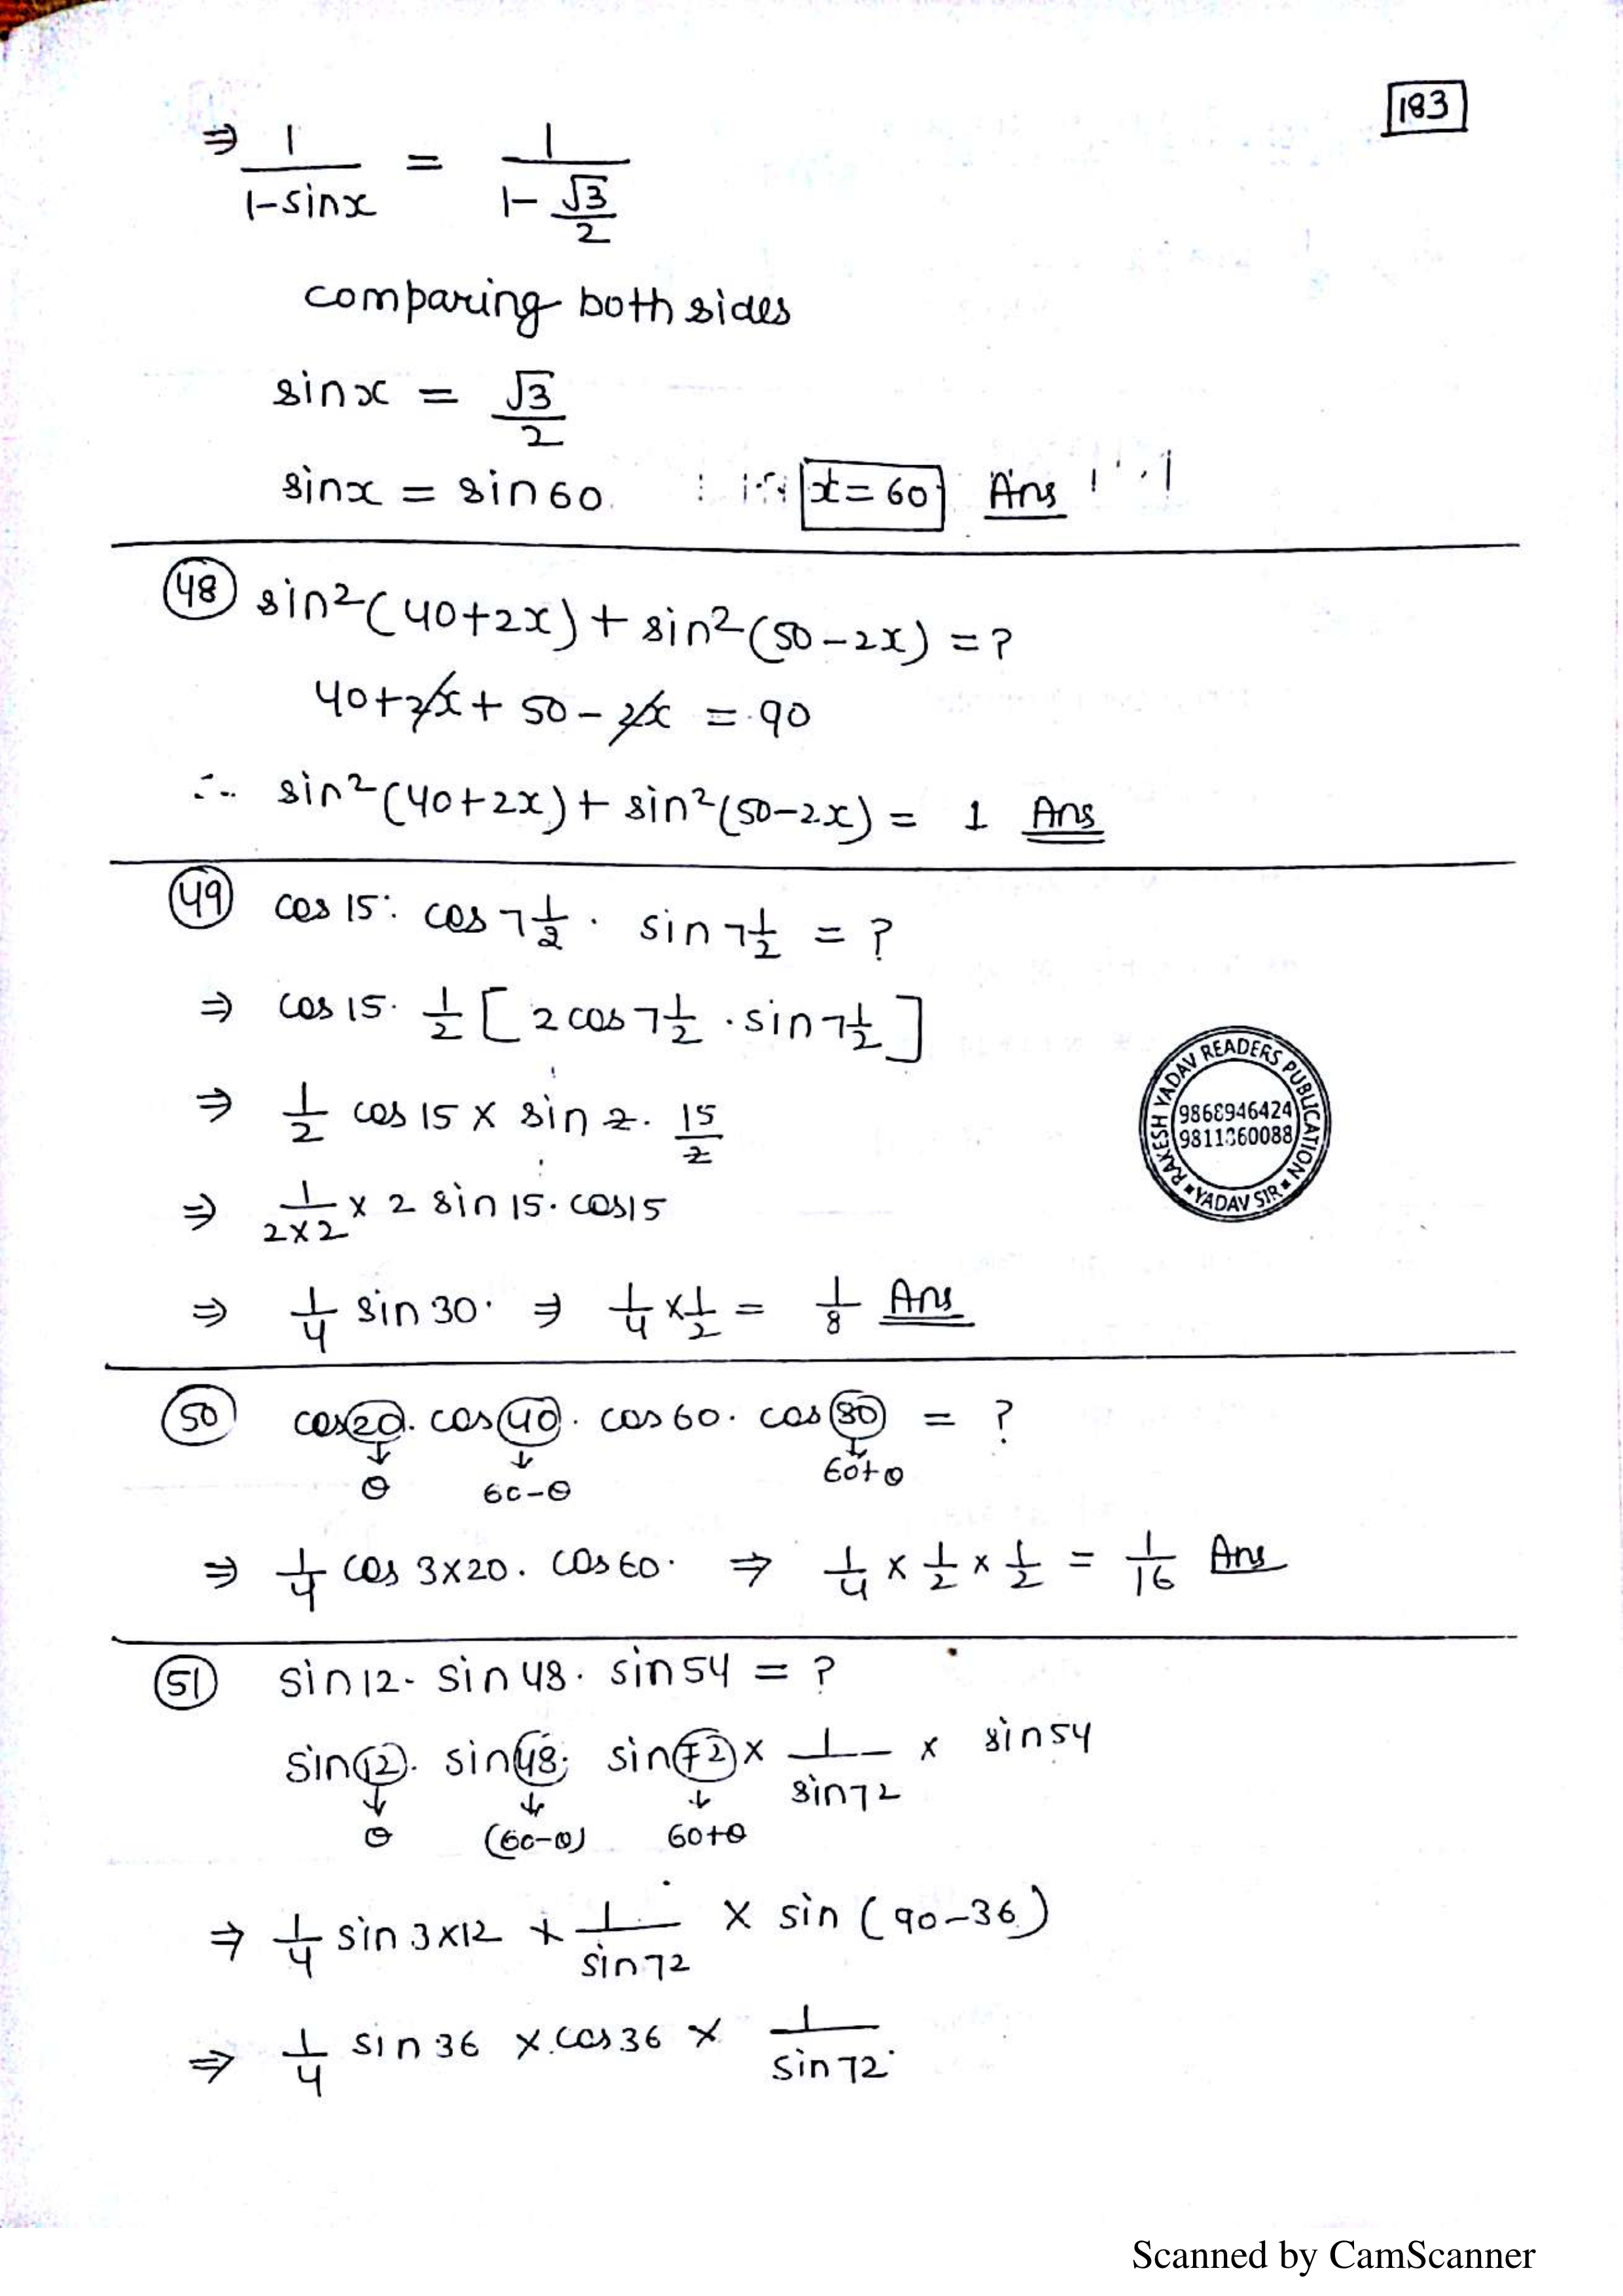 183
⇒ 1/(1-sinx) = 1/(1-√3/2)
comparing both sides
sinx = √3/2
sinx = sin60 x=60 Ans
48 sin²(40+2x)+sin²(50-2x) = ?
40+2x+50-2x = 90
∴ sin²(40+2x)+sin²(50-2x) = 1 Ans
49 cos15. cos7½. sin7½ = ?
⇒ cos15. ½[2cos7½.sin7½]
⇒ ½ cos15 × sin2. 15/2
⇒ 1/(2×2) × 2 sin15. cos15
⇒ ¼ sin30 ⇒ ¼×½ = 1/8 Ans
RAKESH YADAV READERS PUBLICATION
9811360088
YADAV SIR
50 cos20. cos40. cos60. cos80 = ?
θ 60-θ 60+θ
⇒ ¼ cos3×20. cos60. ⇒ ¼×½×½ = 1/16 Ans
51 sin12. sin48. sin54 = ?
sin12. sin48. sin72 × 1/sin72 × sin54
θ (60-θ) 60+θ
⇒ ¼ sin3×12 × 1/sin72 × sin(90-36)
⇒ ¼ sin36 × cos36 × 1/sin72
Scanned by CamScanner